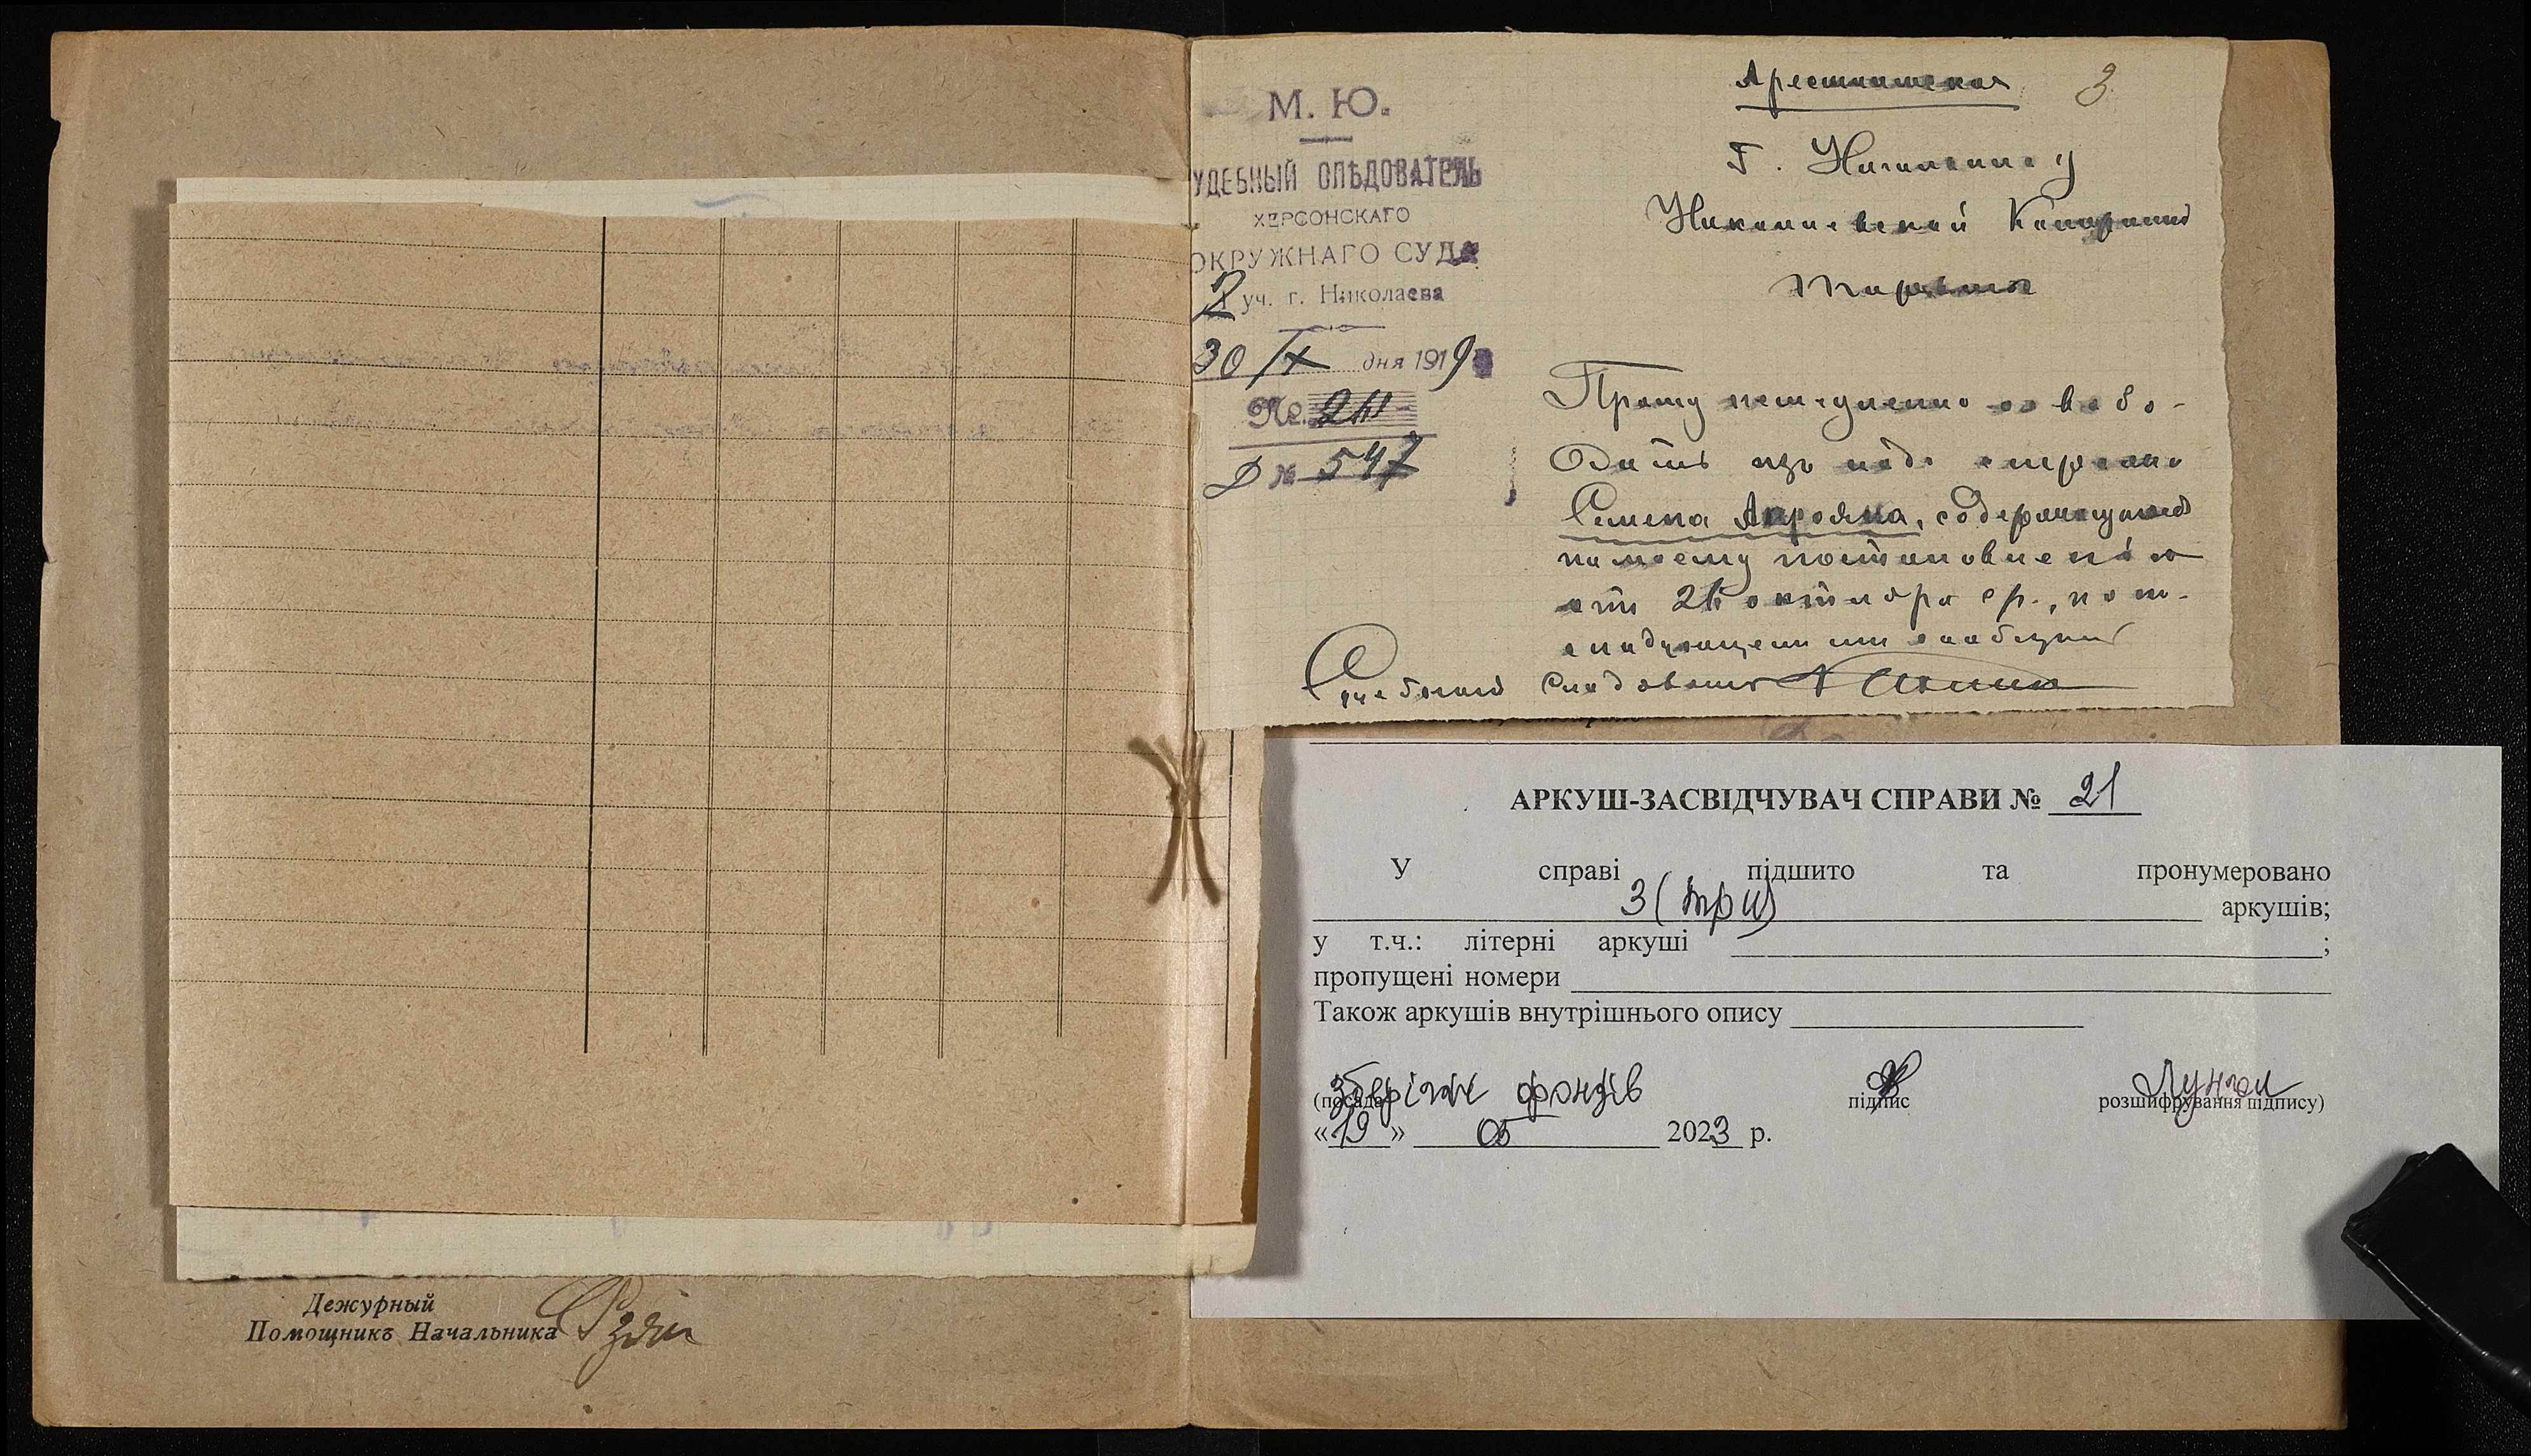 М. Ю.
УДЕБНЫЙ СЛѢДОВАТЕЛЬ
ХЕРСОНСКАГО
ОКРУЖНАГО СУДА
2 уч. г. Николаева
30 IX дня 1919
№
Д № 547
Арестантская
3
Г. Начальнику
Николаевской Каторжной
тюрьмы
Прошу немедленно освобо-
дить изъ подъ стражи
Семена, содержащагося
по моему постановленію
отъ октября с.г., о
послѣдующемъ сообщить
Судебный Слѣдователь
АРКУШ-ЗАСВІДЧУВАЧ СПРАВИ № 21
У справі підшито та пронумеровано
3 (три) аркушів;
у т.ч.: літерні аркуші ;
пропущені номери
Також аркушів внутрішнього опису
зберігач фондів
(посада) підпис розшифрування підпису)
«19» 05 2023 р.
Дежурный
Помощникъ Начальника